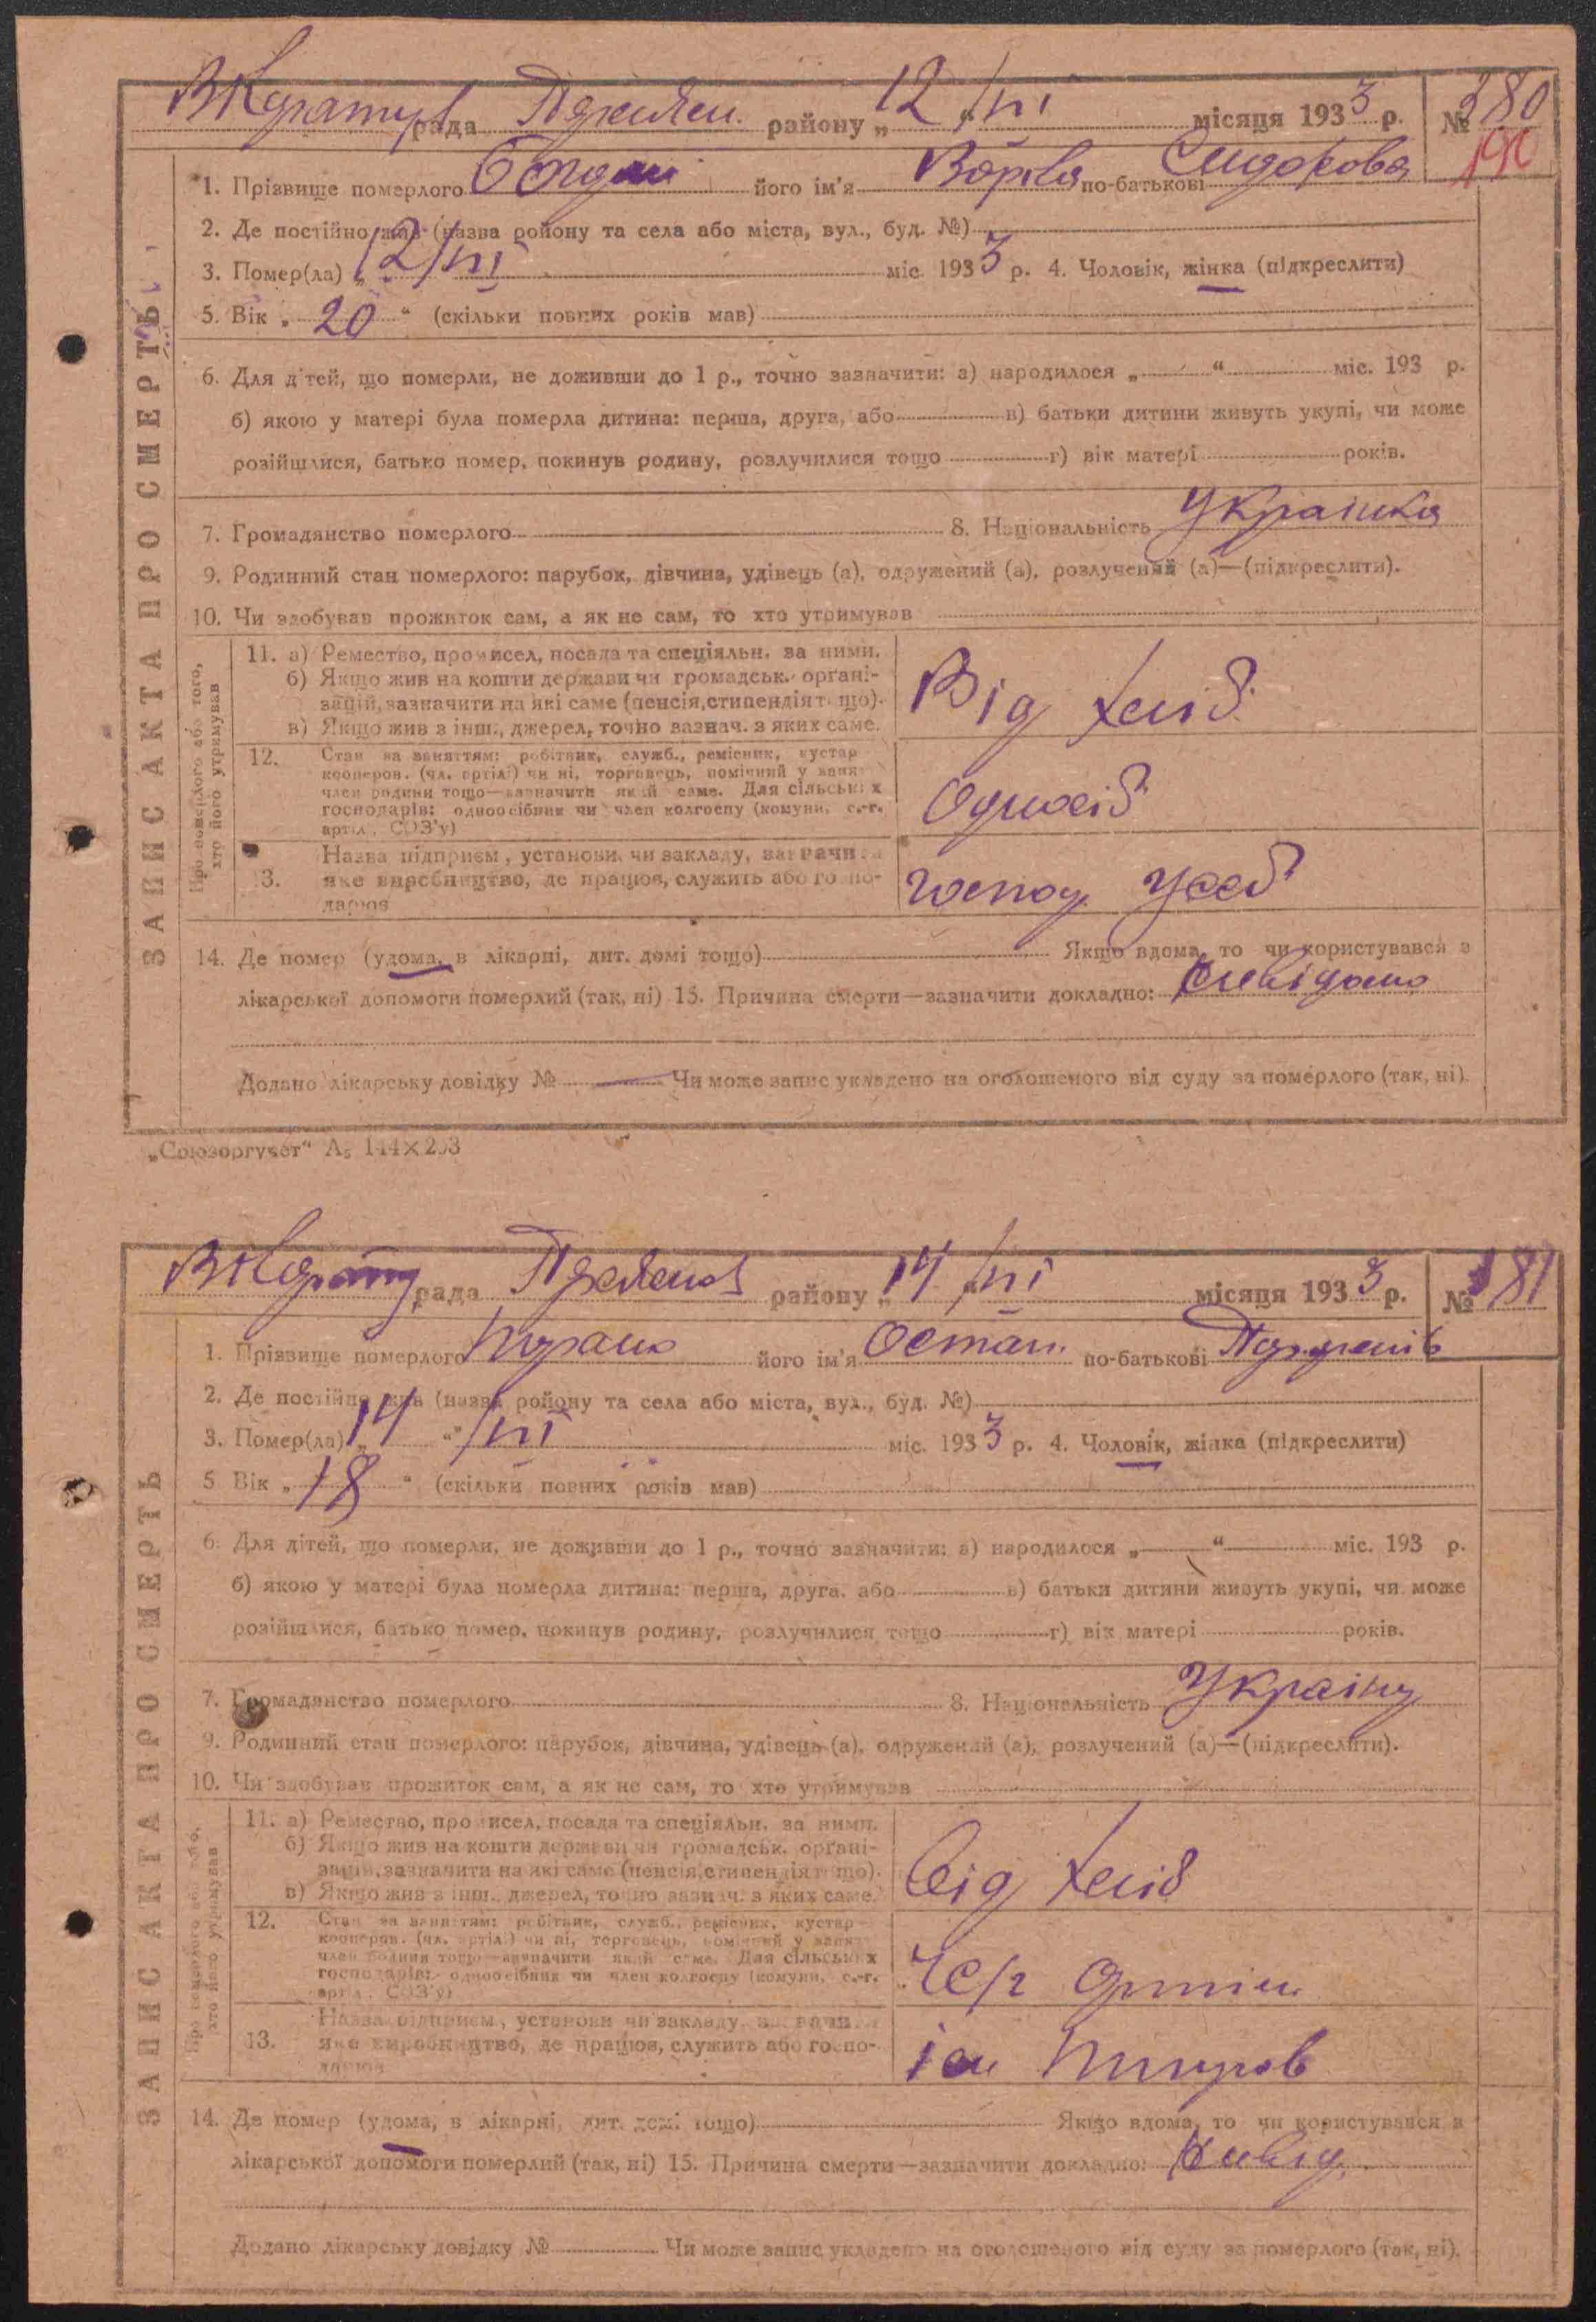 рада району „12“ /VІ місяця 1933 р. № 380
190
1. Прізвище померлого його ім'я по-батькові Сидорова
2. Де постійно жив (назва ройону та села або міста, вул., буд. №)
3. Помер(ла) „12/VІ міс. 1933 р. 4. Чоловік, жінка (підкреслити)
5. Вік „20“ (скільки повних років мав)
6. Для дітей, що померли, не доживши до 1 р., точно зазначити: а) народилося „ “ міс. 193 р.
б) якою у матері була померла дитина: перша, друга, або в) батьки дитини живуть укупі, чи може
розійшлися, батько помер, покинув родину, розлучилися тощо г) вік матері років.
7. Громадянство померлого 8. Національність Українка
9. Родинний стан померлого: парубок, дівчина, удівець (а), одружений (а), розлучений (а)—(підкреслити).
10. Чи здобував прожиток сам, а як не сам, то хто утримував
11. а) Ремество, промисел, посада та спеціяльн. за ними.
б) Якщо жив на кошти держави чи громадськ. органі-
зацій, зазначити на які саме (пенсія, стипендія тощо).
в) Якщо жив з інш., джерел, точно зазнач. з яких саме.
Від хліб
12. Стан за заняттям: робітник, служб., ремісник, кустар
кооперов. (чл. артілі) чи ні, торговець, помічний у занят.
член родини тощо—зазначити який саме. Для сільських
господарів: одноосібник чи член колгоспу (комуни, с.-г.
артіл., СОЗ'у)
Одноосіб
13. Назва підприєм., установи чи закладу, зазначити
яке виробництво, де працює, служить або госпо-
дарює
господ
14. Де помер (удома, в лікарні, дит. домі тощо) Якщо вдома, то чи користувався з
лікарської допомоги померлий (так, ні) 15. Причина смерти—зазначити докладно: невідомо
Додано лікарську довідку № — Чи може запис укладено на оголошеного від суду за померлого (так, ні).
ЗАПИС АКТА ПРО СМЕРТЬ
Про померлого або того,
хто його утримував
„Союзоргучет“ А₅ 144×203
рада району „14“ /VІ місяця 1933 р. № 381
1. Прізвище померлого його ім'я Остап по-батькові
2. Де постійно жив (назва ройону та села або міста, вул., буд. №)
3. Помер(ла) „14“ /VІ міс. 1933 р. 4. Чоловік, жінка (підкреслити)
5 Вік „18“ (скільки повних років мав)
6. Для дітей, що померли, не доживши до 1 р., точно зазначити: а) народилося „ “ міс. 193 р.
б) якою у матері була померла дитина: перша, друга, або в) батьки дитини живуть укупі, чи може
розійшлися, батько помер, покинув родину, розлучилися тощо г) вік матері років.
7. Громадянство померлого 8. Національність
9. Родинний стан померлого: парубок, дівчина, удівець (а), одружений (а), розлучений (а)—(підкреслити).
10. Чи здобував прожиток сам, а як не сам, то хто утримував
11. а) Ремество, промисел, посада та спеціяльн. за ними.
б) Якщо жив на кошти держави чи громадськ. органі-
зацій, зазначити на які саме (пенсія, стипендія тощо).
в) Якщо жив з інш., джерел, точно зазнач. з яких саме.
Від хліб
12. Стан за заняттям: робітник, служб., ремісник, кустар
кооперов. (чл. артілі) чи ні, торговець, помічний у занят.
член родини тощо—зазначити який саме. Для сільських
господарів: одноосібник чи член колгоспу (комуни, с.-г.
артіл., СОЗ'у)
13. Назва підприєм., установи чи закладу, зазначити
яке виробництво, де працює, служить або госпо-
дарює
14. Де помер (удома, в лікарні, дит. домі тощо) Якщо вдома, то чи користувався з
лікарської допомоги померлий (так, ні) 15. Причина смерти—зазначити докладно: невід.
Додано лікарську довідку № Чи може запис укладено на оголошеного від суду за померлого (так, ні).
ЗАПИС АКТА ПРО СМЕРТЬ
Про померлого або того,
хто його утримував